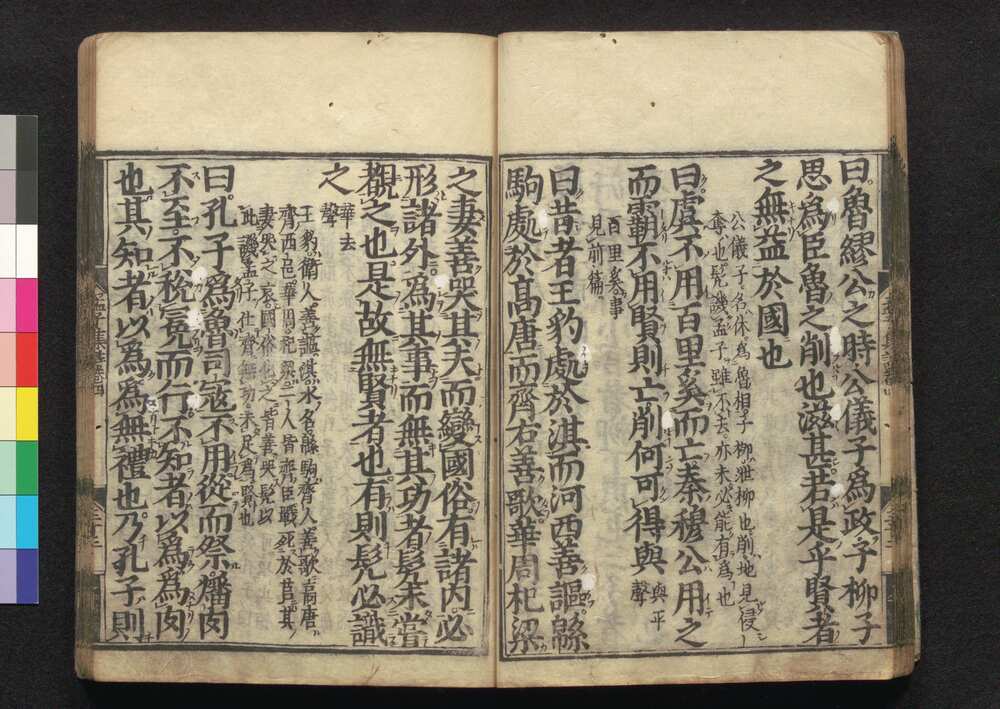 曰魯繆公之時公儀子爲政子柳子
思爲臣魯之削也滋甚若是乎賢者
之無益於國也
公儀子名休爲魯相子柳泄柳也削地見侵
奪也髡譏孟子雖不去亦未必能有爲也
曰虞不用百里奚而亡秦穆公用之
而霸不用賢則亡削何可得與
與平
聲
百里奚事
見前篇
曰昔者王豹處於淇而河西善謳緜
駒處於高唐而齊右善歌華周杞梁
之妻善哭其夫而變國俗有諸内必
形諸外爲其事而無其功者髡未嘗
覩之也是故無賢者也有則髡必識
之
華去
聲
王豹衛人善謳淇水名緜駒齊人善歌高唐
齊西邑華周杞梁二人皆齊臣戰死於莒其
妻哭之哀國俗化之皆善哭髡以
此譏孟子仕齊無功未足爲賢也
曰孔子爲魯司寇不用從而祭燔肉
不至不稅冕而行不知者以爲爲肉
也其知者以爲爲無禮也乃孔子則